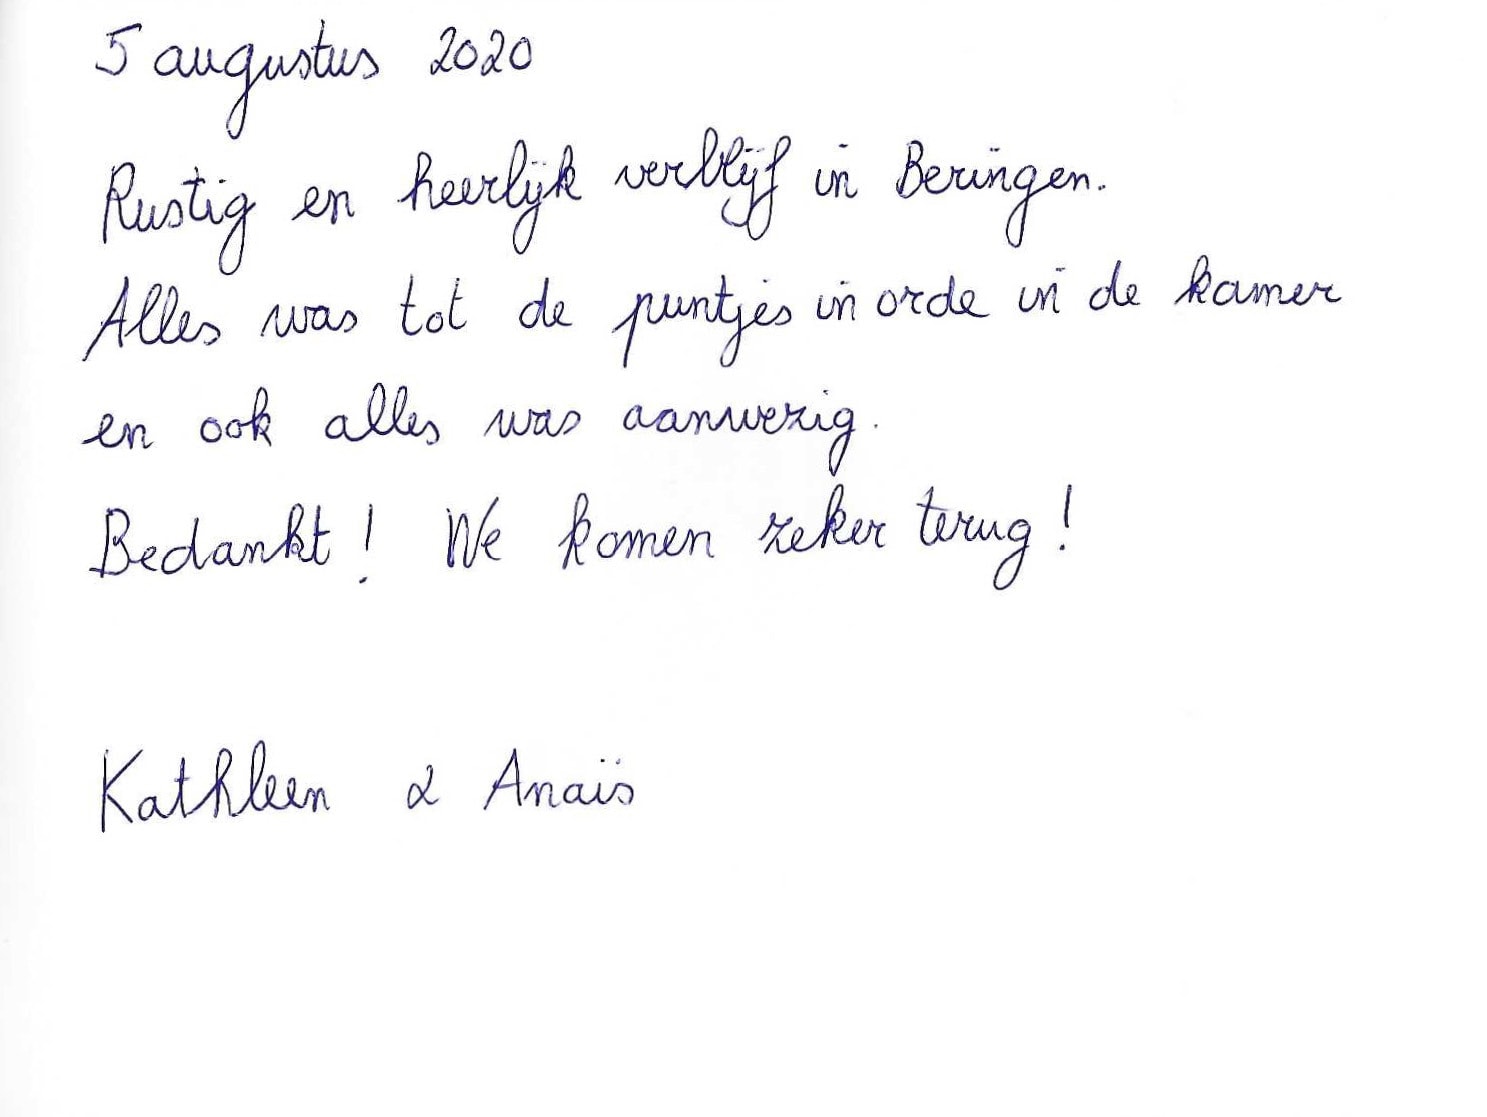 5 augustus 2020
Rustig en heerlijk verblijf in Beringen.
Alles was tot de puntjes in orde in de kamer
en ook alles was aanwezig.
Bedankt! We komen zeker terug!
Kathleen & Anaïs